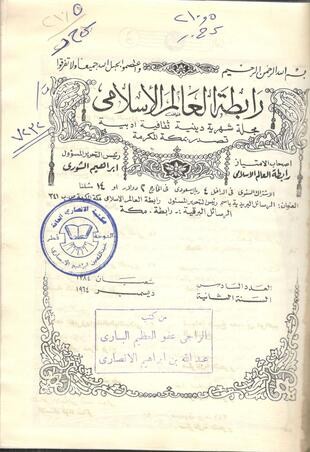 بسم الله الرحمن الرحيم
واعتصموا بحبل الله جميعا ولا تفرقوا
رابطة العالم الإسلامي
مجلة شهرية دينية ثقافية أدبية
تصدر بمكة المكرمة
أصحاب الامتياز
رابطة العالم الإسلامي
رئيس التحرير المسؤول
ابراهيم الشورى
الاشتراك السنوي في الداخل ٤ ريال سعودي في الخارج ٢ دولار او ١٤ شلنا
العنوان: الرسائل البريدية باسم رئيس التحرير المسئول رابطة العالم الاسلامي مكة المكرمة ص.ب ٢٤١
الرسائل البرقية :- رابطة . مكة
مكتبة الانصاري العامة
الدوحة
قطر
عبدالله بن ابراهيم الانصاري
العدد السادس
السنة الثانية
شعبان ١٣٨٤
ديسمبر ١٩٦٤
من كتب
الراجي عفو العظيم الباري
عبد الله بن ابراهيم الانصاري